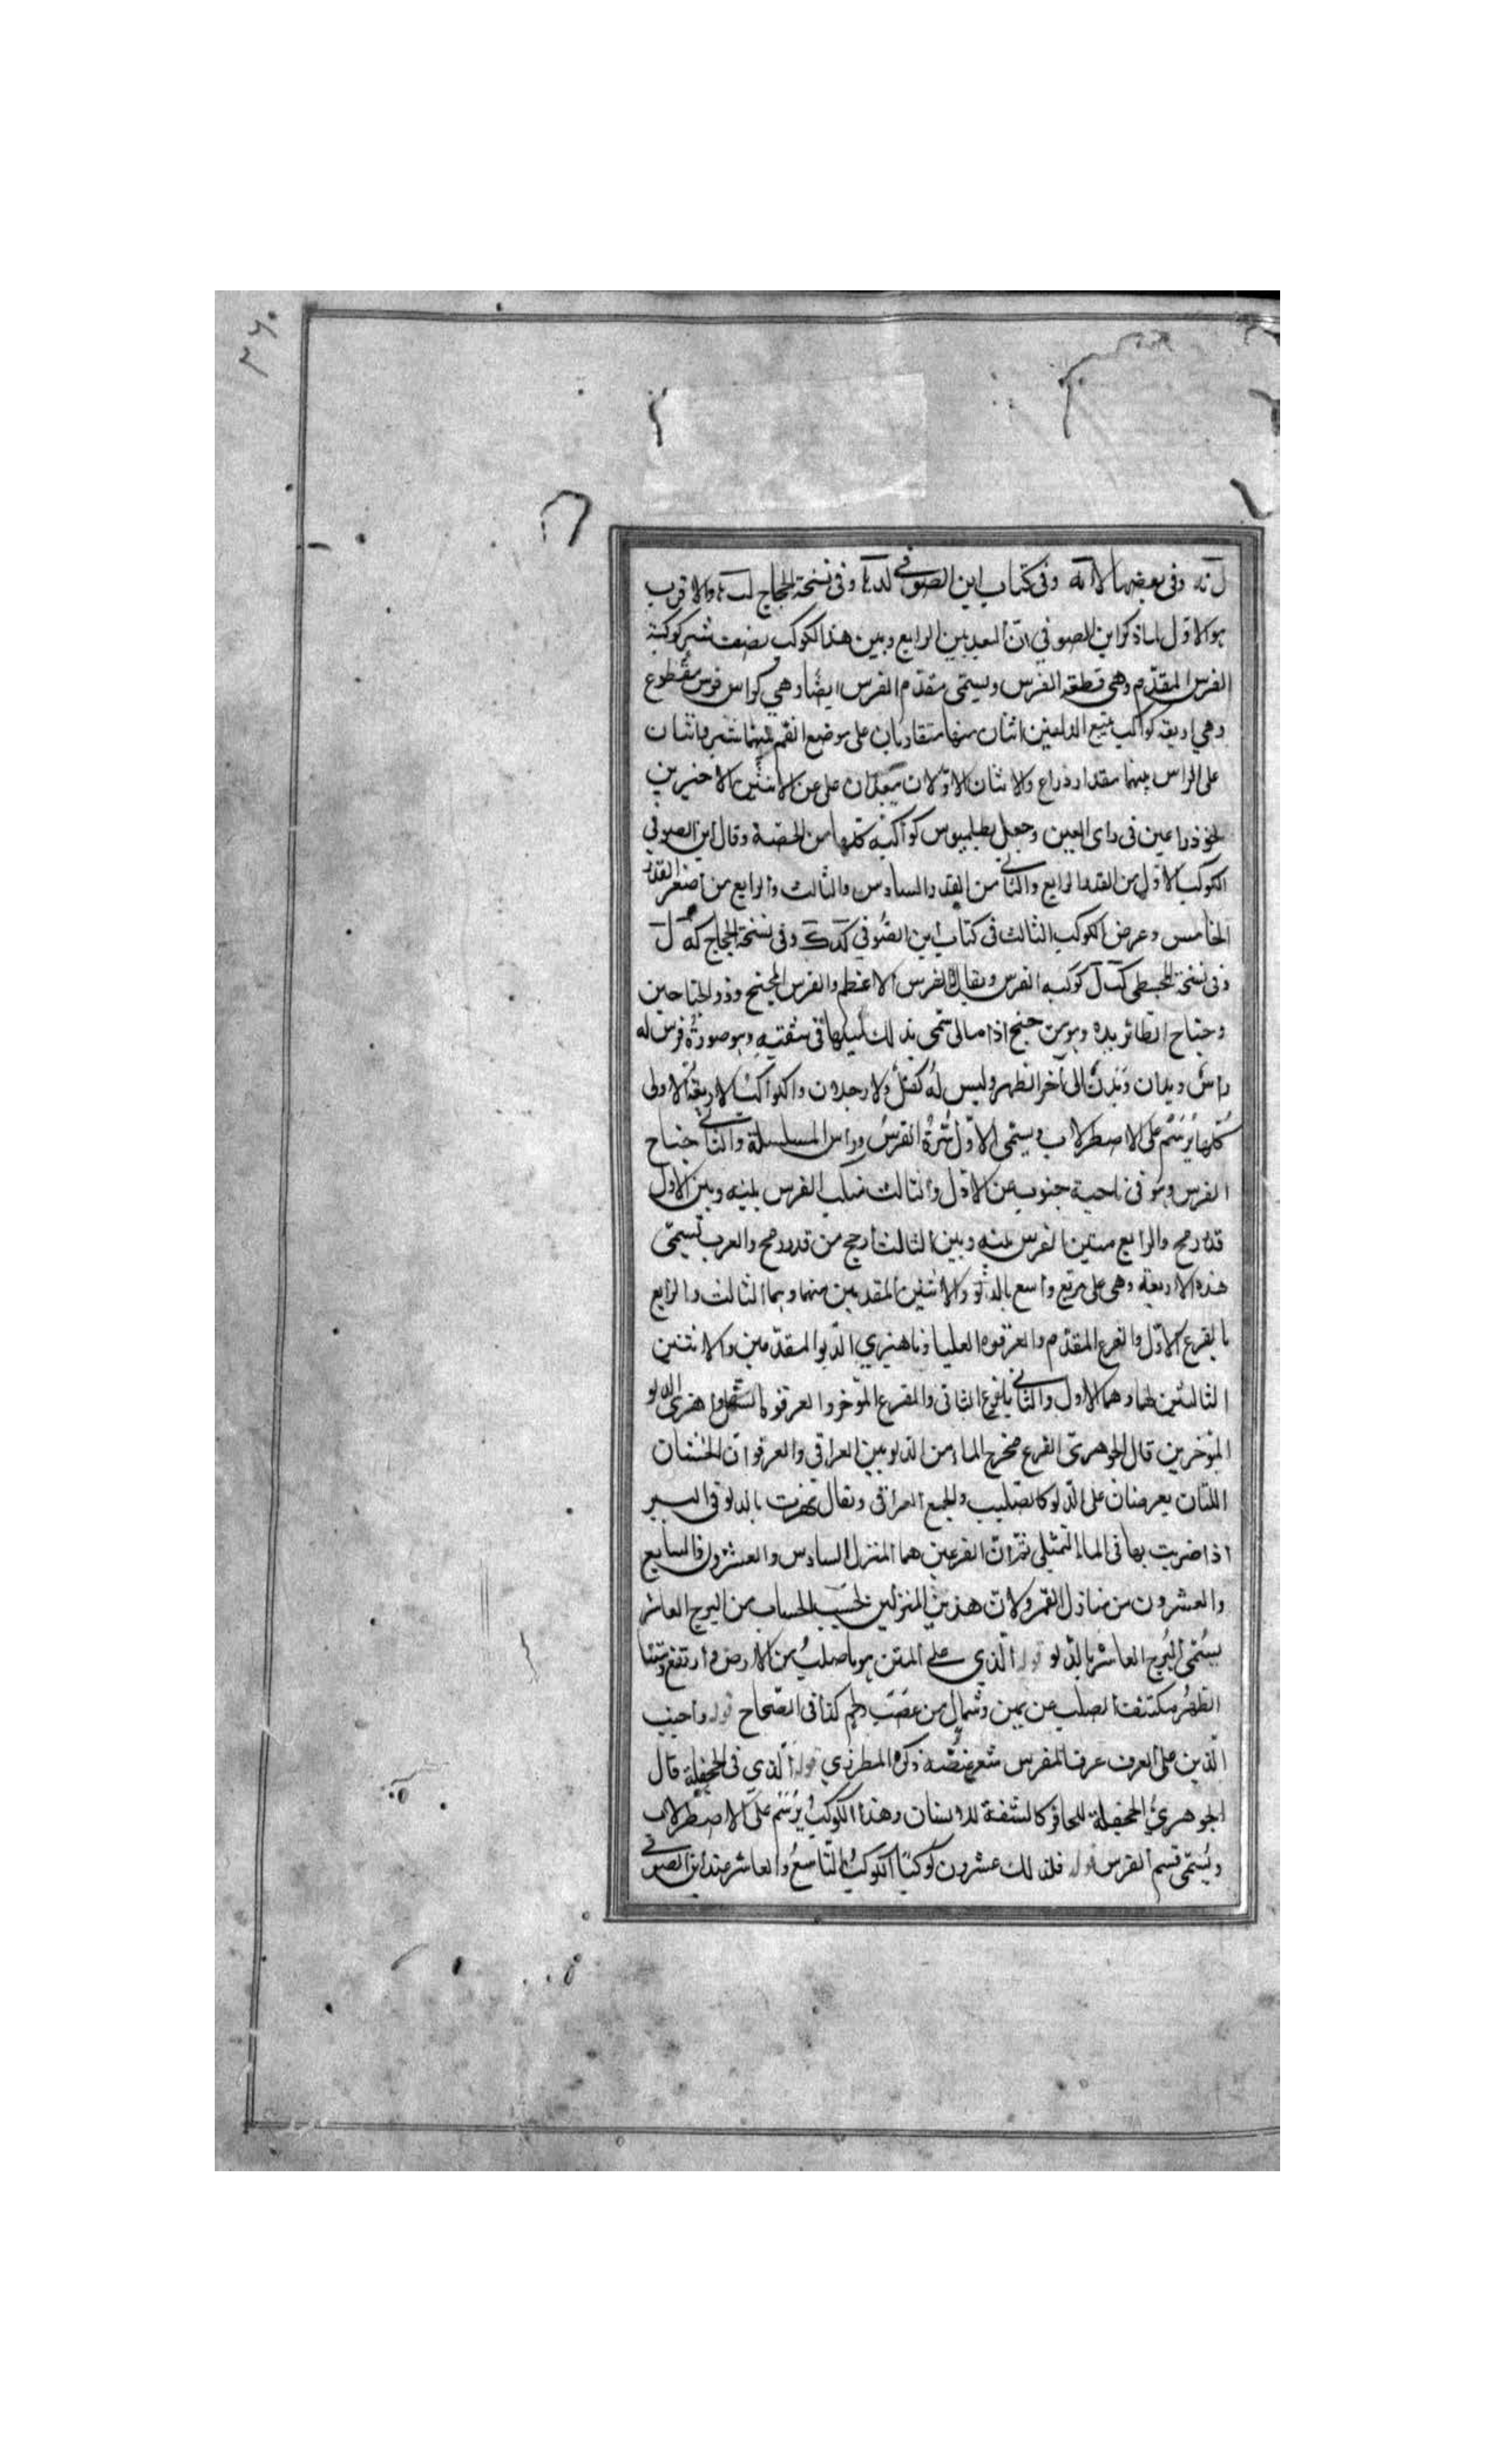 ٣٦٠
ل نه وفى بعضها لا ل نه وفى كتاب ابن الصوفي لد ما وفى نسخة الحجاج لب ما والاقرب
هو الاول لما ذكر ابن الصوفي ان البعد بين الرابع وبين هذا الكوكب نصف شبر كوكبة
الفرس المقدّم وهي قطعة الفرس ويسمّى مقدّم الفرس ايضًا وهي كراس فرس مقطوع
وهي اربعة كواكب يتبع الدلفين اثنان منها متقاربان على موضع الفم بينهما شبر واثنان
على الراس بينهما مقدار ذراع والاثنان الاوّلان يبعدان على عن الاثنين الاخيرين
نحو ذراعين فى راى العين وجعل بطلميوس كواكبه كلها من الخفية وقال ابن الصوفي
الكوكب الاوّل من القدر الرابع والثاني من القدر السادس والثالث والرابع من اصغر القدر
الخامس وعرض الكوكب الثالث فى كتاب ابن الصّوفي كد ك وفى نسخة الحجاج كه ل
وفى نسخة المجسطي كب ل كوكبة الفرس ويقال الفرس الاعظم والفرس المجنح وذو الجناحين
وجناح الطائر يده وهو من جنح اذا مال سمّى بذلك لميلها فى شقيه وهو صورة فرس له
راس ويدان وبدن الى آخر الظهر وليس له كفل ولا رجلان والكواكب الاربعة الاولى
كلها يرسم على الاصطرلاب ويسمّى الاول سُرّة الفرس وراس المسلسلة والثاني جناح
الفرس وهو فى ناحية جنوب عن الاول والثالث منكب الفرس بينه وبين الاول
قدر رمح والرابع متن الفرس بينه وبين الثالث ارجح من قدر رمح والعرب تسمّى
هذه الاربعة وهي على مربّع واسع بالدلو والاثنين المقدمين منهما وهما الثالث والرابع
بالفرع الاوّل والفرع المقدّم والعرقوه العليا وناهزي الدّلو المقدّمين والاثنين
الثالثين لهما وهما الاول والثاني بالفرع الثانى والفرع المؤخر والعرقوة السفلى وناهزى الدلو
المؤخرين قال الجوهرىّ الفرع مخرج الماء من الدلو بين العراقى والعرقوتان الخشبتان
اللتان يعرضان على الدّلو كالصليب والجمع العراقى ويقال نهزت بالدلو فى البير
اذا ضربت بها فى الماء لتمتلى ثمّ انّ الفرعين هما المنزل السادس والعشرون والسابع
والعشرون من منازل القمر ولانّ هذين المنزلين بحسب الحساب من البرج العاشر
يسمّى البرج العاشر بالدّلو قوله الّذي على المتن هو ما صلب من الارض وارتفع ومتنا
الظهر مكتنفا الصلب عن يمين وشمال من عصب ولحم كذا فى الصّحاح قوله واحبب
الّذين على العرف عرف الفرس شعر عنقه ذكره المطرزي قوله الّذي فى الجحفلة قال
الجوهريّ الجحفلة للحافر كالشفة للانسان وهذا الكوكب يرسم على الاصطرلاب
ويسمّى فم الفرس قوله فذلك عشرون كوكبًا الكوكب التّاسع والعاشر عند ابن الصوفي